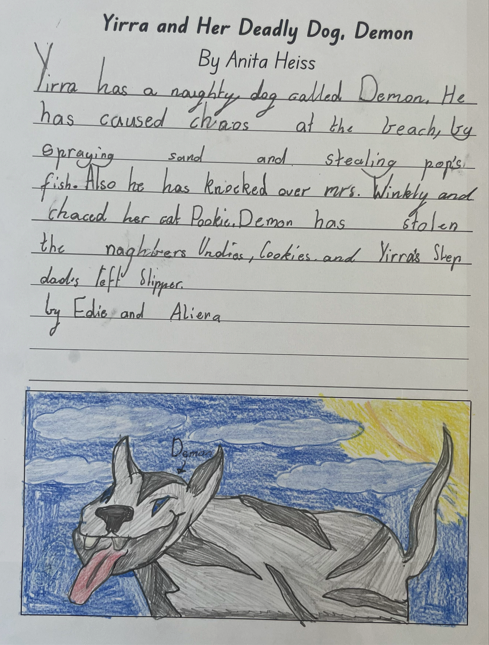 Yirra and Her Deadly Dog, Demon
By Anita Heiss
Yirra has a naughty dog called Demon. He
has caused chaos at the beach, by
spraying sand and stealing pop's
fish. Also he has knocked over mrs. Winkly and
chaced her cat Pookie. Demon has stolen
the naghbers Undies, Cookies and Yirra's Step
dad's left Slipper.
by Edie and Aliena
Demon